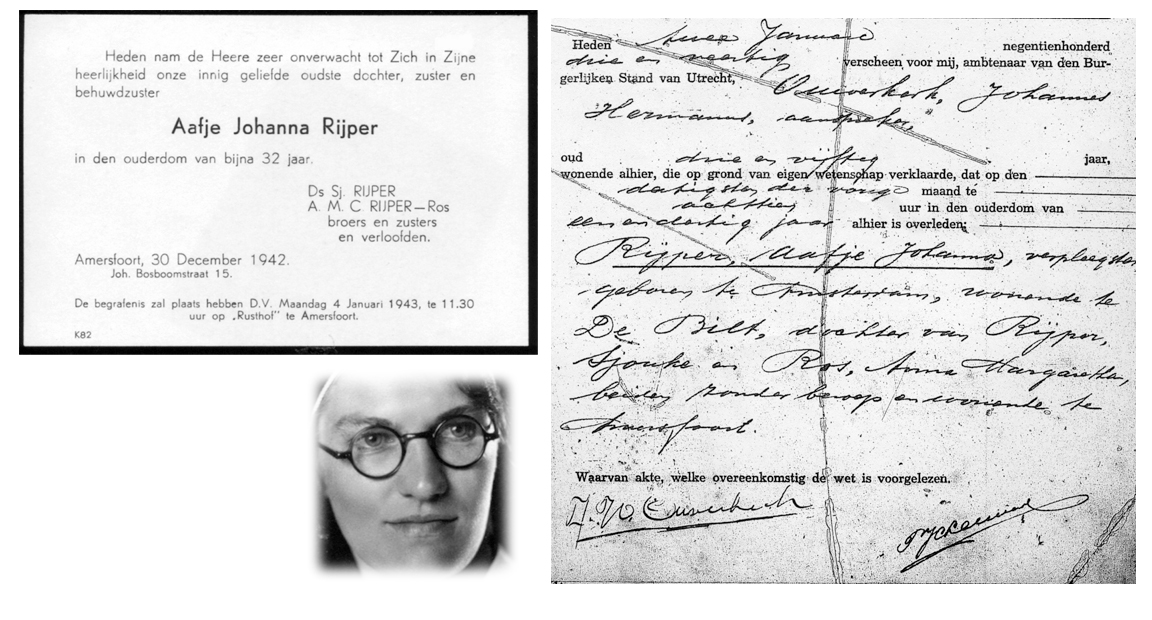 Heden nam de Heere zeer onverwacht tot Zich in Zijne
heerlijkheid onze innig geliefde oudste dochter, zuster en
behuwdzuster
Aafje Johanna Rijper
in den ouderdom van bijna 32 jaar.
Ds Sj. RIJPER
A. M. C. RIJPER—Ros
broers en zusters
en verloofden.
Amersfoort, 30 December 1942.
Joh. Bosboomstraat 15.
De begrafenis zal plaats hebben D.V. Maandag 4 Januari 1943, te 11.30
uur op „Rusthof" te Amersfoort.
K82
Heden twee Januari negentienhonderd
drie en veertig verscheen voor mij, ambtenaar van den Bur-
gerlijken Stand van Utrecht, Ouwerkerk, Johannes
Hermanus, aanspreker,
oud drie en vijftig jaar,
wonende alhier, die op grond van eigen wetenschap verklaarde, dat op den
dertigsten der vorige maand te
achttien uur in den ouderdom van
een en dertig jaar alhier is overleden:
Rijper, Aafje Johanna, verpleegster
geboren te Amsterdam, wonende te
De Bilt, dochter van Rijper,
Sjouke en Ros, Anna Margaretha,
beiden zonder beroep en wonende te
Amersfoort.
Waarvan akte, welke overeenkomstig de wet is voorgelezen.